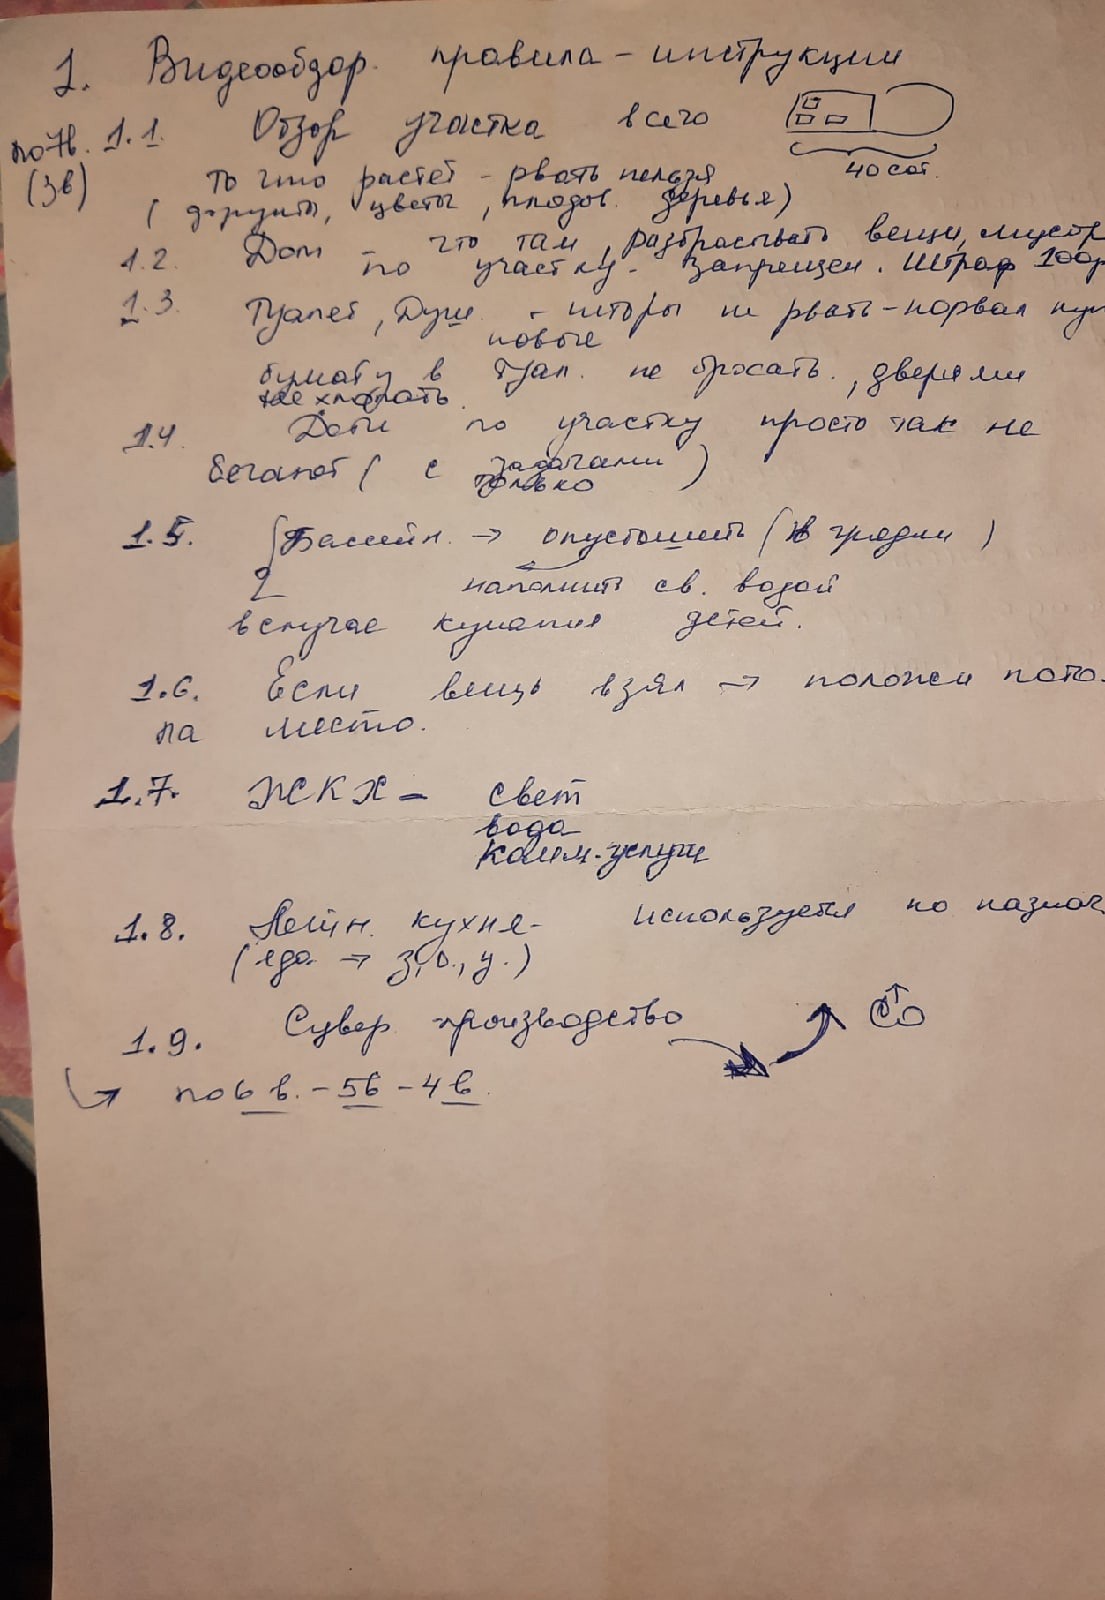 1. Видеообзор. правила - инструкции
1.1. Обзор участка всего
по 7в.
(3в)
40 сот.
То что растет - рвать нельзя
( фрукты, цветы, плодов. деревья)
1.2. Дом - что там, разбрасывать вещи, мусор
по участку - запрещен. Штраф 100р
1.3. Туалет, Душ - шторы не рвать - порвал куп
новые
бумагу в туал. не бросать, дверями
не хлопать.
1.4. Дети по участку просто так не
бегают ( с задачами
только )
1.5. Бассейн. → опустошить ( в грядки )
наполнить св. водой
в случае купания детей.
1.6. Если вещь взял → положи пото
на место.
1.7. ЖКХ - свет
вода
комм. услуги
1.8. Летн. кухня - используется по назнач.
(еда → з, о., у.)
1.9. Сувер. производство
СО
по 6 в. - 5в - 4в